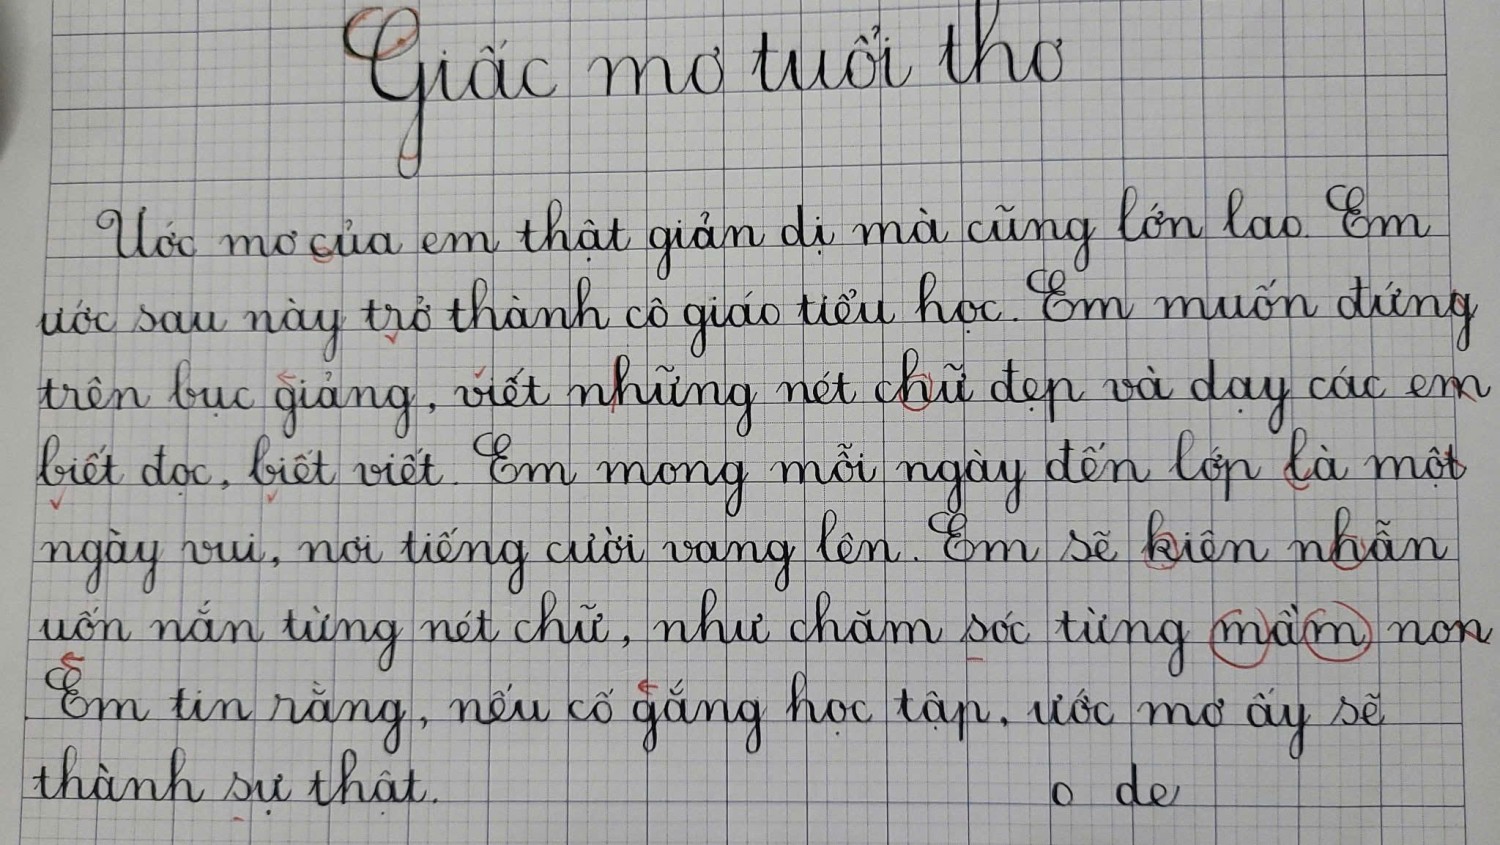 Giấc mơ tuổi thơ
Ước mơ của em thật giản dị mà cũng lớn lao. Em
ước sau này trở thành cô giáo tiểu học. Em muốn đứng
trên bục giảng, viết những nét chữ đẹp và dạy các em
biết đọc, biết viết. Em mong mỗi ngày đến lớp là một
ngày vui, nơi tiếng cười vang lên. Em sẽ kiên nhẫn
uốn nắn từng nét chữ, như chăm sóc từng mầm non
Em tin rằng, nếu cố gắng học tập, ước mơ ấy sẽ
thành sự thật. o de